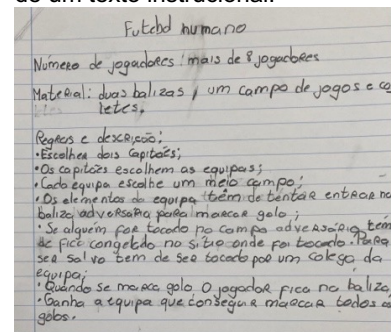 de um texto instrucional.
Futebol humano
Número de jogadores: mais de 8 jogadores
Material: duas balizas, um campo de jogos e co
letes.
Regras e descrição:
• Escolher dois capitães;
• Os capitães escolhem as equipas;
• Cada equipa escolhe um meio campo;
• Os elementos da equipa têm de tentar entrar na
baliza adversária para marcar golo;
• Se alguém for tocado no campo adversário tem
de fica congelado no sitio onde foi tocado. Para
ser salvo tem de ser tocado por um colega da
equipa;
• Quando se marca golo o jogador fica na baliza;
• Ganha a equipa que conseguir marcar todos os
golos.